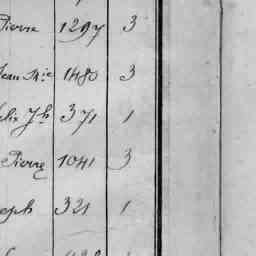 Pierre 1297 3
Jean Mie 1480 3
Felix Jh 371 1
Pierre 1041 3
Joseph 321 1